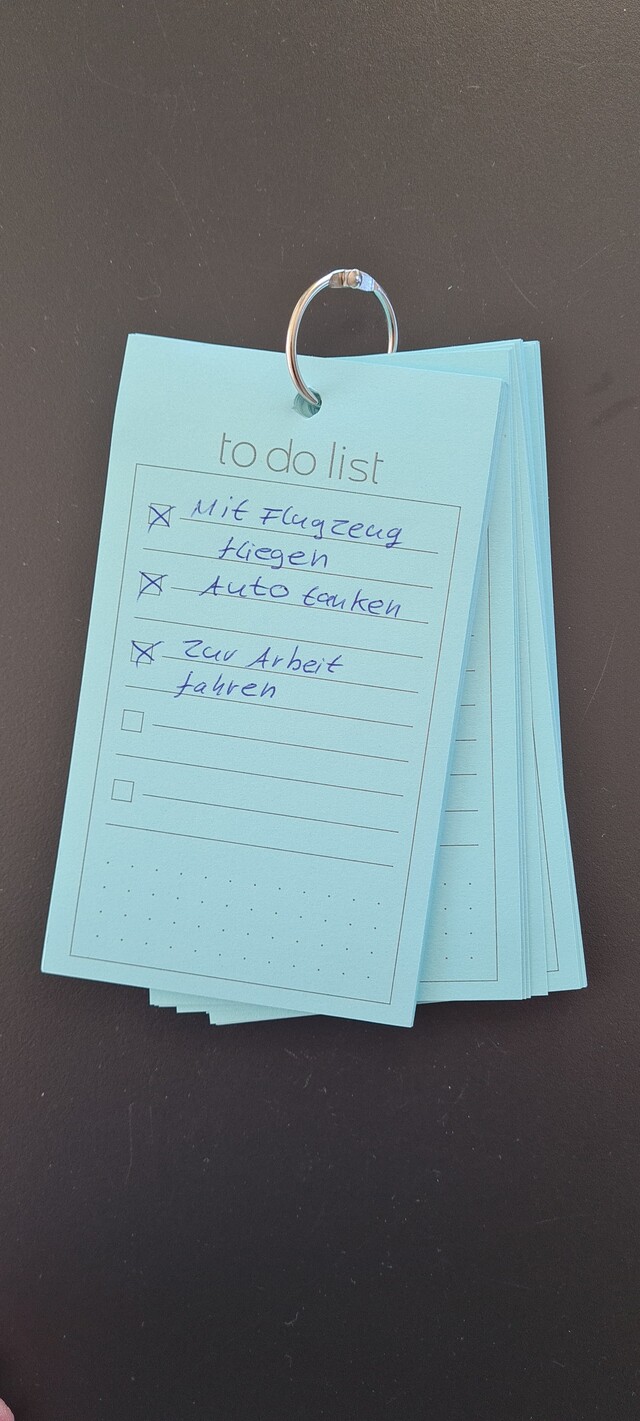 to do list
Mit Flugzeug
fliegen
Auto tanken
Zur Arbeit
fahren